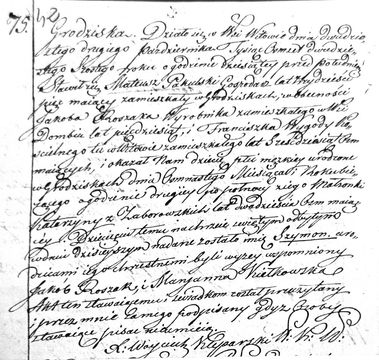 75. 42
Grodziska. Działo się w Wsi Witowie dnia dwudzie-
stego drugiego Października Tysiąc Osmset dwudzie-
stego szostego roku o godzinie dziesiątey przed południem
Stawił się Mateusz Pakulski Gospodarz lat trzydzieści
pięc maiący zamieszkały w Grodziskach, w obecności
Jakoba Proszaka Wyrobnika zamieszkałego w Wsi
lat piędziesiąt, i Franciszka Wygody Ko-
scielnego tu w Witowie zamieszkałego lat sześdziesiąt
maiących, i okazał Nam dziecię płci męzkiey urodzone
w Grodziskach dnia Osmnastego Miesiąca i Roku bie-
żącego o godzinie drugiey po połnocy z iego Małżonki
Katarzyny z Zaborowskich lat dwadzieścia osm maią-
cey. Dziecięciu temu na chrzcie świętym odbytym
w dniu dzisieyszym nadane zostało imię Szymon, a ro-
dzicami iego chrzestnemi byli wyżey wspomniony
Jakob Proszak, i Maryanna Kwietkowska
Akt ten stawaiącemu i świadkom został przeczytany
i przez mnie samego podpisany gdyż Osoby
stawaiące pisać nieumieią.
X. Woyciech